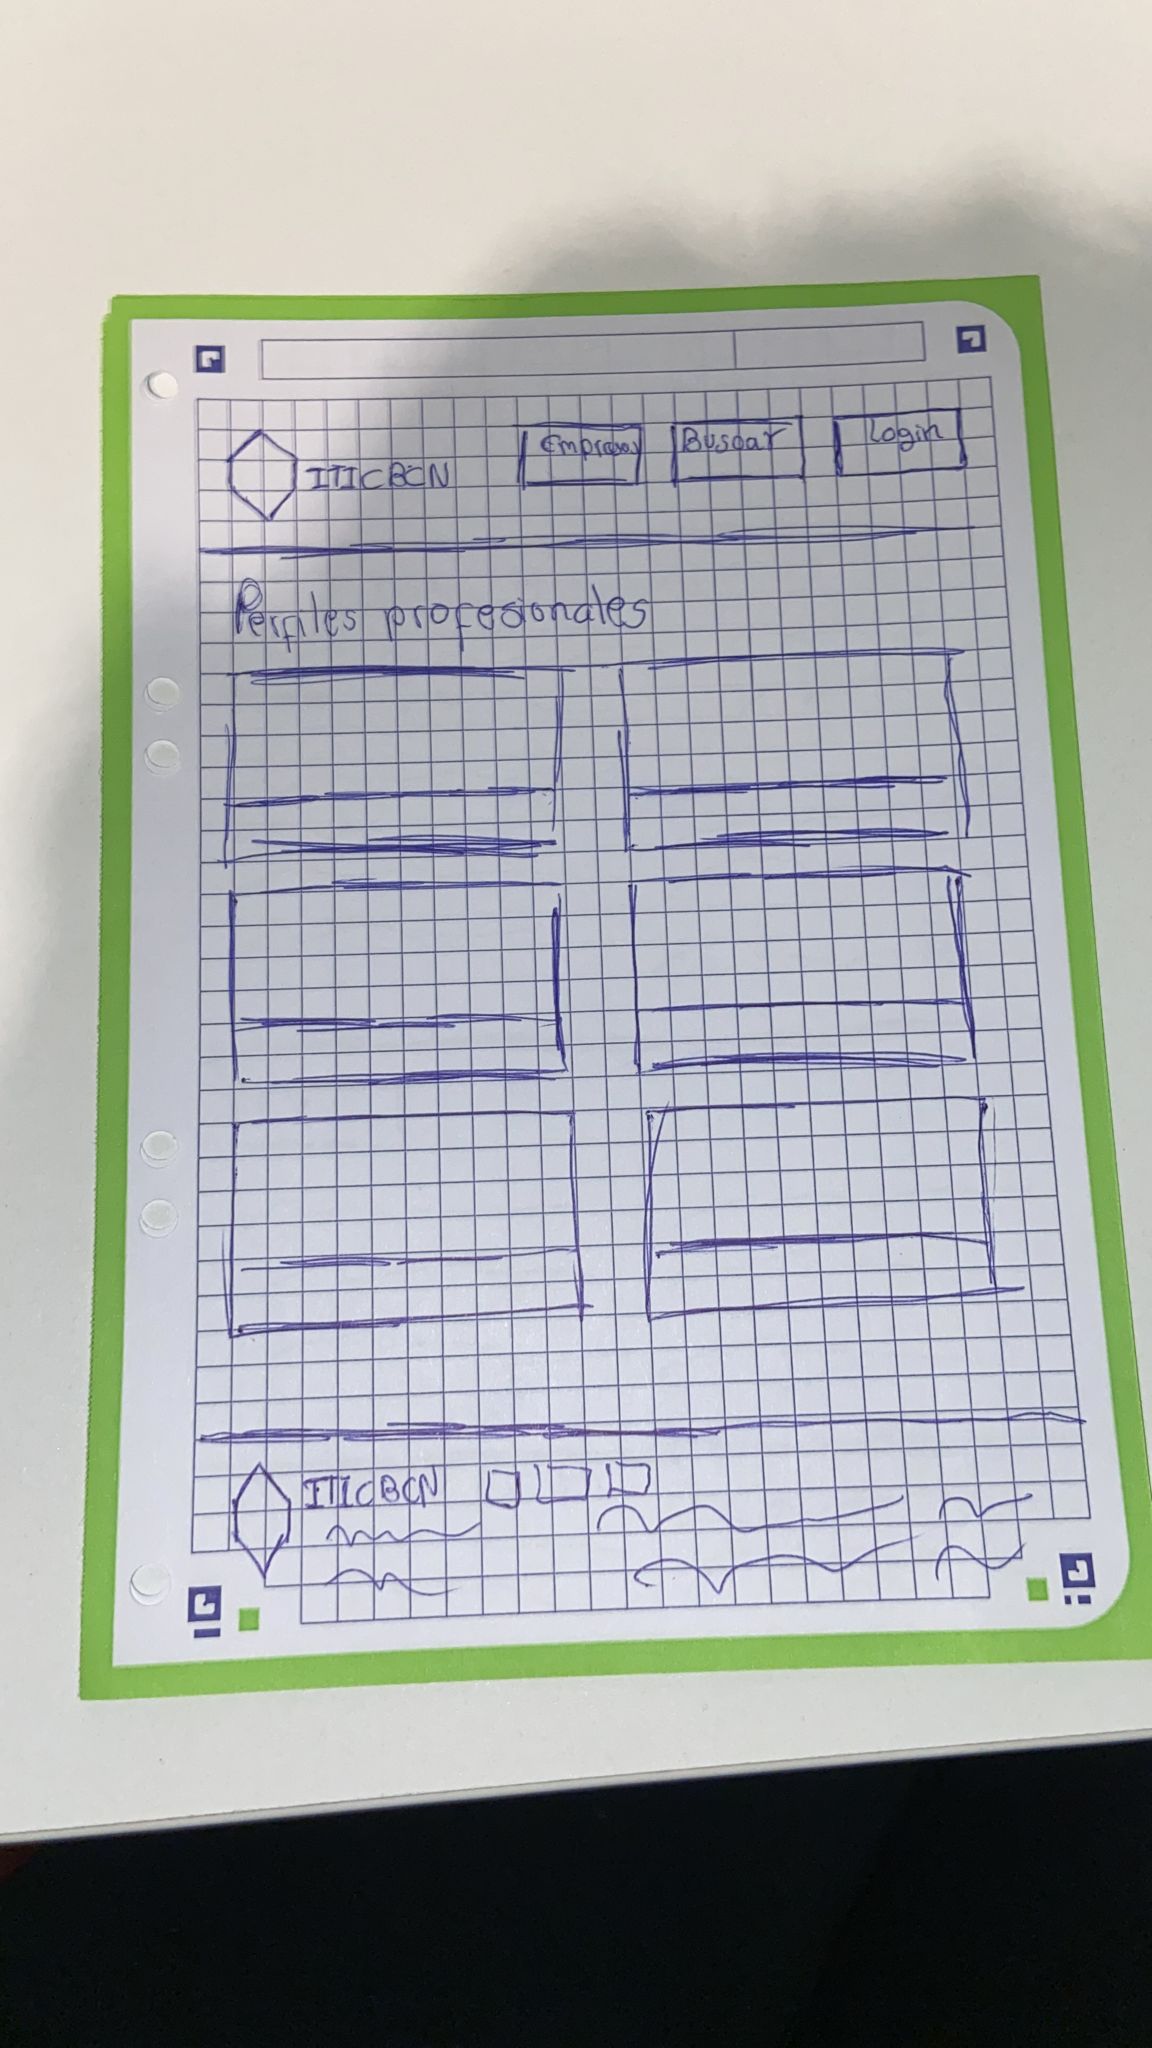 ITICBCN
Empresas
Buscar
Login
Perfiles profesionales
ITICBCN